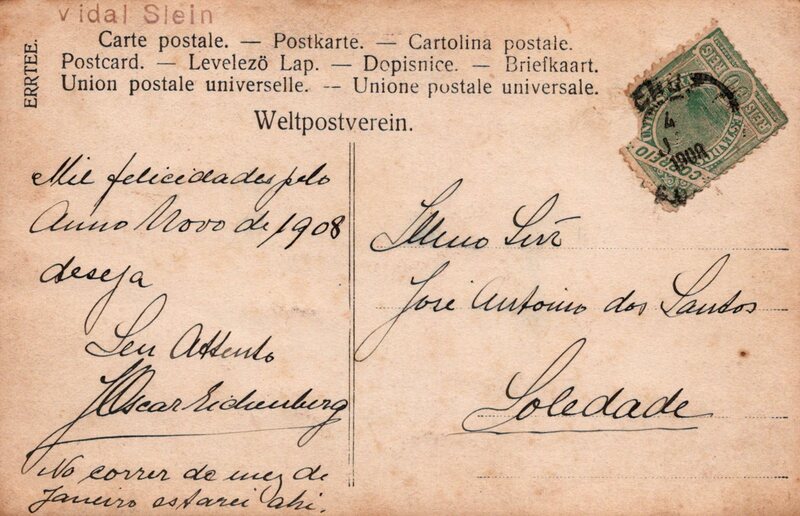 Vidal Slein
ERRTEE.
Carte postale. — Postkarte. — Cartolina postale.
Postcard. — Levelezö Lap. — Dopisnice. — Briefkaart.
Union postale universelle. -- Unione postale universale.
Weltpostverein.
4
J
1908
CORREIO
REIS
REIS
Mil felicidades pelo
Anno Novo de 1908
deseja
Seu Attento
Oscar Eichenberg
No correr de mez de
Janeiro estarei ahi.
Illmo Snr
José Antonio dos Santos
Soledade